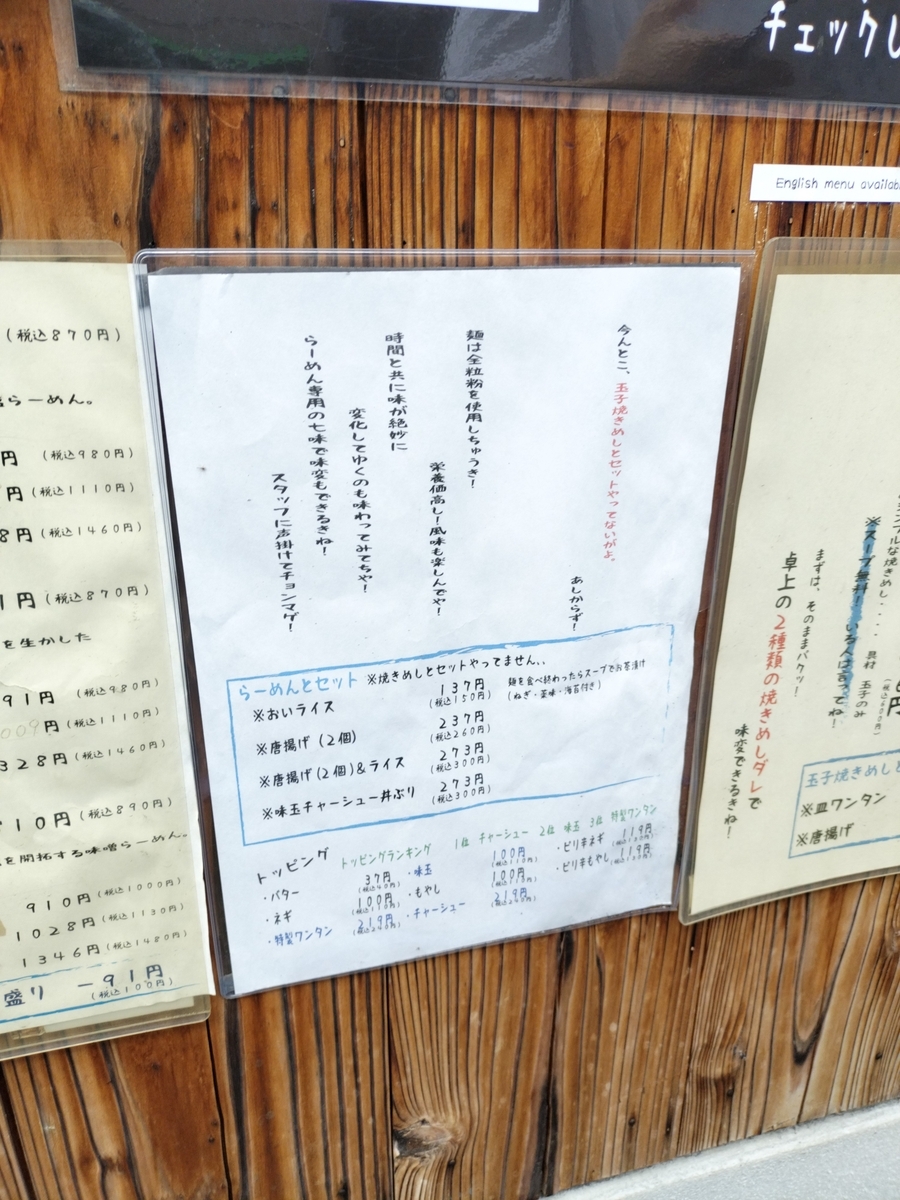 チェックし
English menu availab
(税込870円)
らーめん。
円 (税込980円)
円 (税込1110円)
8円 (税込1460円)
1円 (税込870円)
を生かした
91円 (税込980円)
009円 (税込1110円)
328円 (税込1460円)
710円 (税込890円)
を開拓する味噌らーめん。
910円 (税込1000円)
1028円 (税込1130円)
1346円 (税込1480円)
盛り -91円
(税込100円)
今んとこ、玉子焼きめしとセットやってないがよ。
あしからず!
麺は全粒粉を使用しちゅうき!
栄養価高し!風味も楽しんでや!
時間と共に味が絶妙に
変化してゆくのも味わってみてちや!
らーめん専用の七味で味変もできるきね!
スタッフに声掛けてチョンマゲ!
らーめんとセット ※焼きめしとセットやってません..
※おいライス 137円 (税込150円) 麺を食べ終わったらスープでお茶漬け
(ねぎ・薬味・海苔付き)
※唐揚げ(2個) 237円 (税込260円)
※唐揚げ(2個)&ライス 273円 (税込300円)
※味玉チャーシュー丼ぶり 273円 (税込300円)
トッピング トッピングランキング 1位 チャーシュー 2位 味玉 3位 特製ワンタン
・バター 37円 (税込40円) ・味玉 100円 (税込110円) ・ピリ辛ネギ 119円 (税込130円)
・ネギ 100円 (税込110円) ・もやし 100円 (税込110円) ・ピリ辛もやし 119円 (税込130円)
・特製ワンタン 219円 (税込240円) ・チャーシュー 219円 (税込240円)
ンプルな焼きめし・・・・ 具材 玉子のみ
円
(税込600円)
※スープ無料!いる人は言ってね!
まずは、そのままパクッ!
卓上の2種類の焼きめしダレで
味変できるきね!
玉子焼きめしと
※皿ワンタン
※唐揚げ